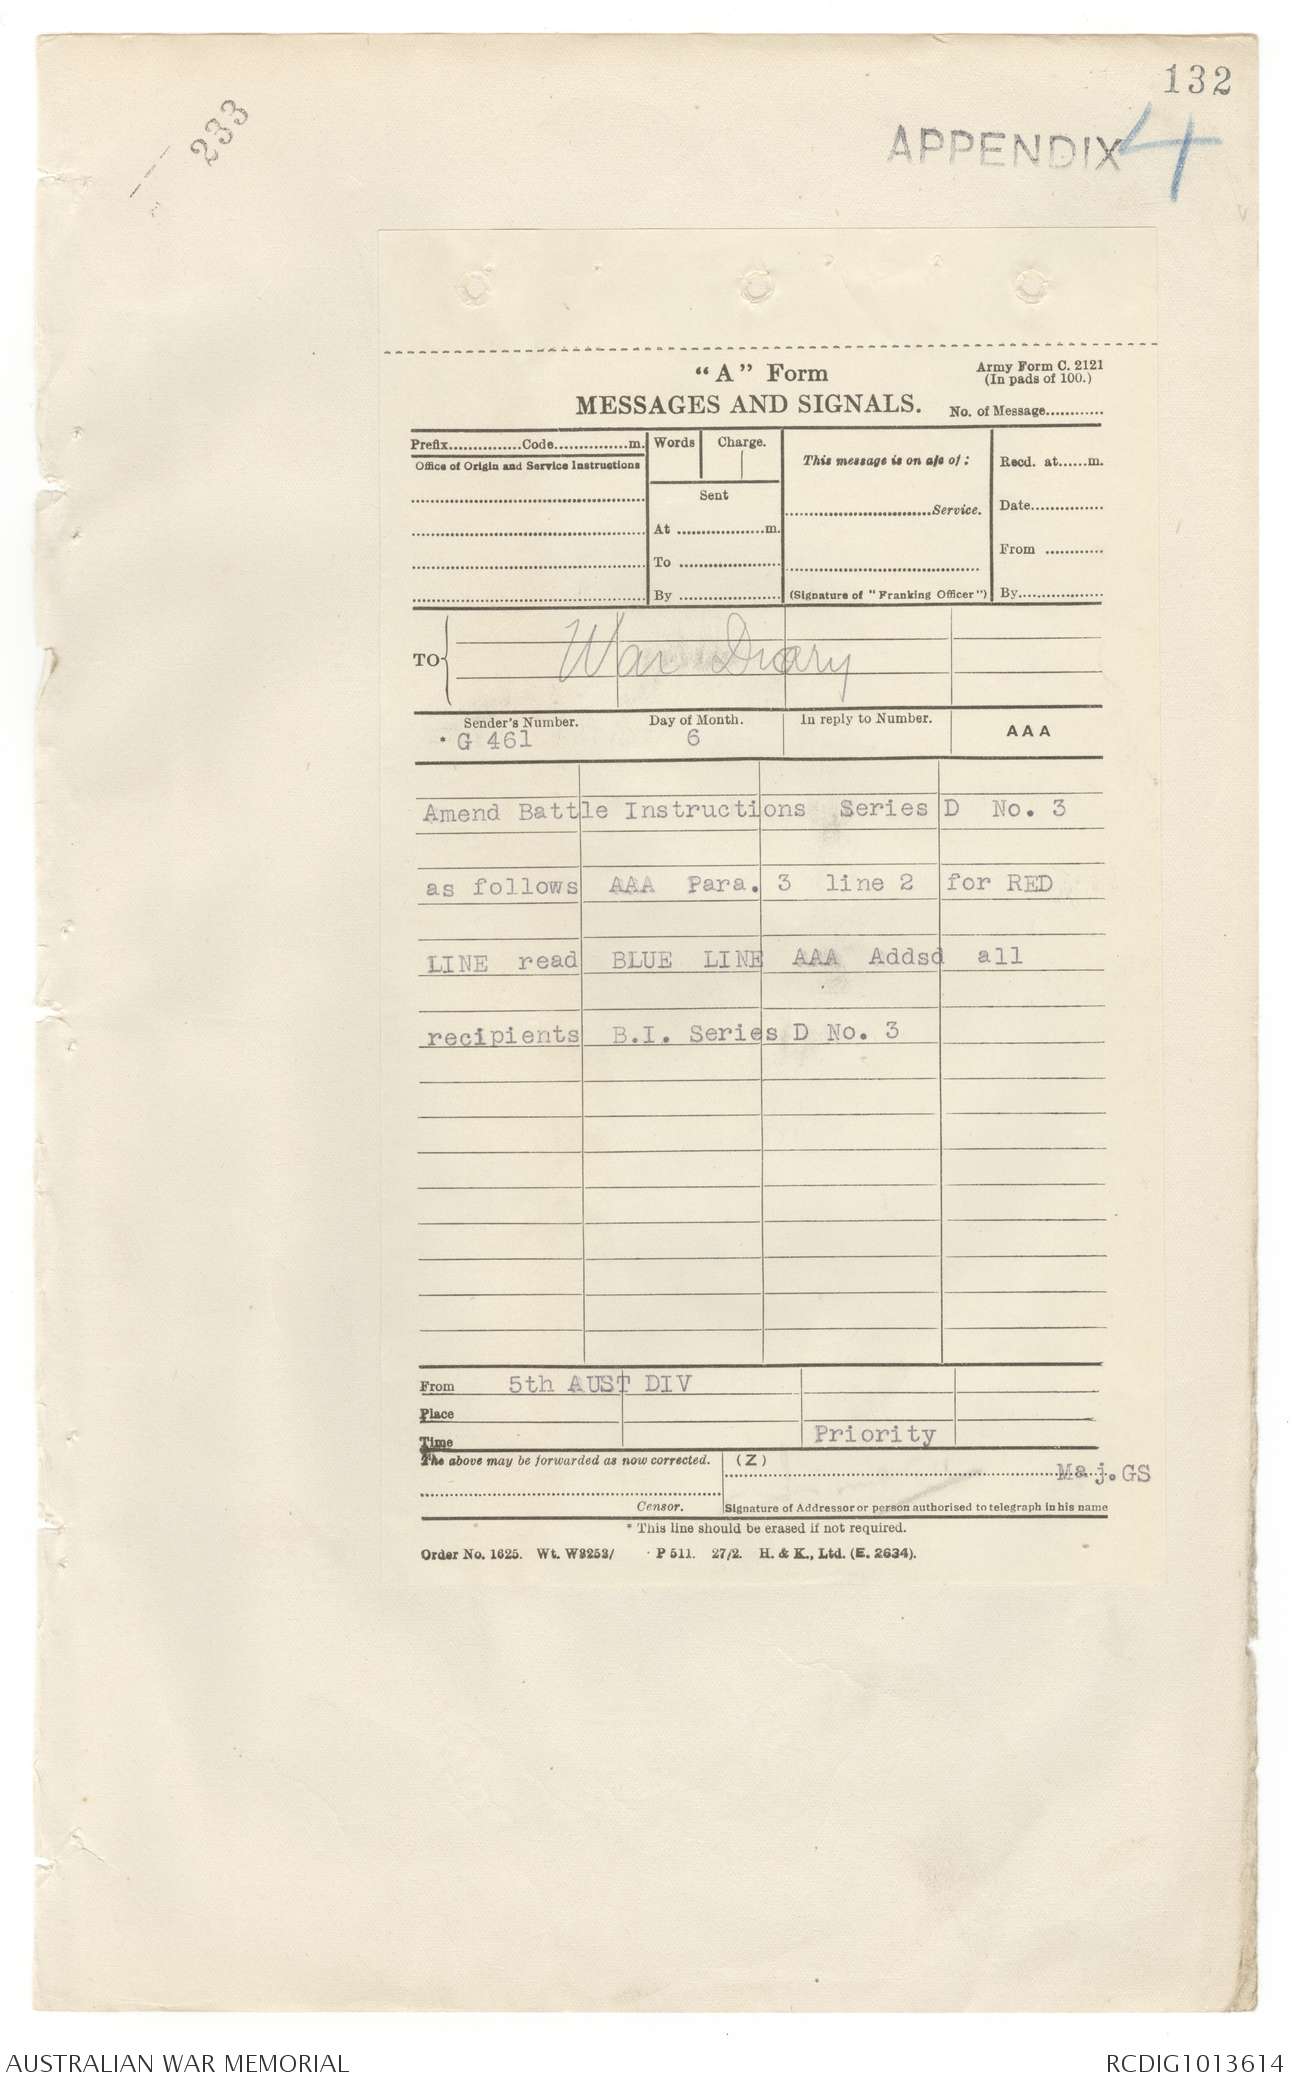 132
233
APPENDIX 4
"A" Form
Army Form C. 2121
(In pads of 100.)
MESSAGES AND SIGNALS.
No. of Message............
Prefix..............Code...............m.
Words
Charge.
This message is on a/c of:
Recd. at......m.
Office of Origin and Service Instructions
Sent
..............................Service.
Date...............
At ..................m.
From ............
To .....................
By .....................
(Signature of "Franking Officer")
By..................
TO
War Diary
Sender's Number.
Day of Month.
In reply to Number.
AAA
* G 461
6
Amend Battle Instructions Series D No. 3
as follows AAA Para. 3 line 2 for RED
LINE read BLUE LINE AAA Addsd all
recipients B.I. Series D No. 3
From 5th AUST DIV
Place
Time
Priority
The above may be forwarded as now corrected.
(Z)
Maj.GS
Censor.
Signature of Addressor or person authorised to telegraph in his name
* This line should be erased if not required.
Order No. 1625. Wt. W3253/ P 511. 27/2. H. & K., Ltd. (E. 2634).
AUSTRALIAN WAR MEMORIAL
RCDIG1013614